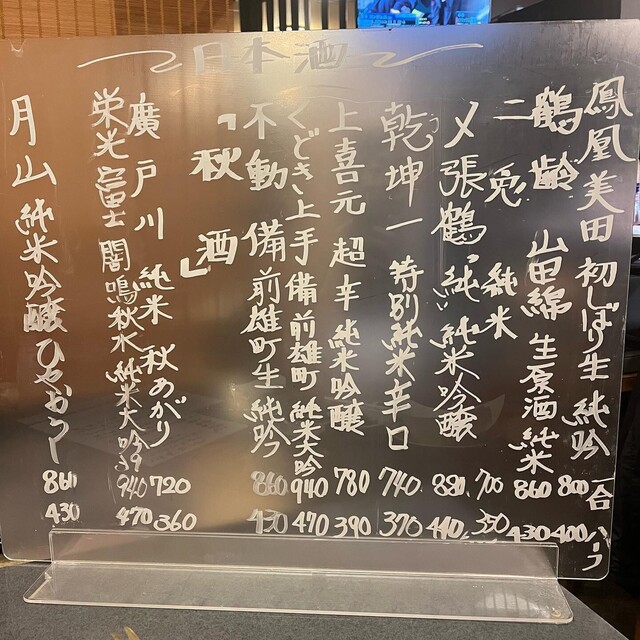 日本酒
一合 ハーフ
鳳凰美田 初しぼり生 純吟 800 400
鶴齢 山田錦 生原酒 純米 860 430
二兎 純米 700 350
〆張鶴 "純" 純米吟醸 880 440
乾坤一 特別純米辛口 740 370
上喜元 超辛 純米吟醸 780 390
くどき上手 備前雄町 純米大吟 940 470
不動 備前雄町生 純吟 860 430
「秋酒」
廣戸川 純米 秋あがり 720 360
栄光冨士 闇鳴秋水 純米大吟39 940 470
月山 純米吟醸 ひやおろし 860 430